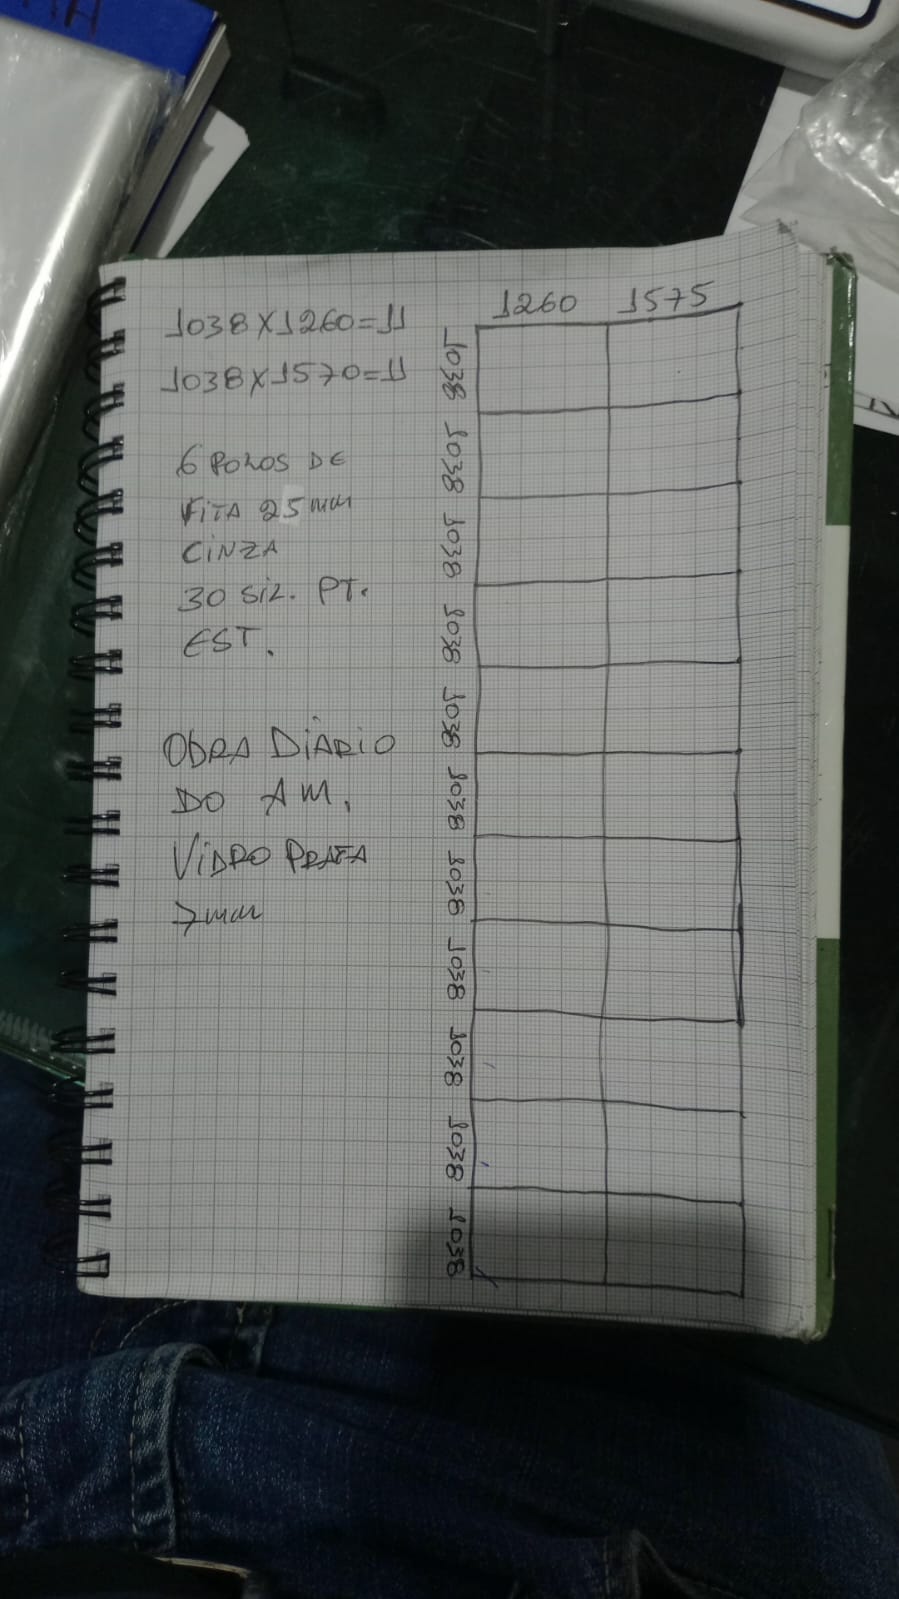 1038X1260=11
1038X1570=11
6 ROLOS DE
FITA 25mm
CINZA
30 SIL. PT.
EST.
OBRA DIÁRIO
DO AM.
VIDRO PRATA
7mm
1260 1575
1038
1038
1038
1038
1038
1038
1038
1038
1038
1038
1038